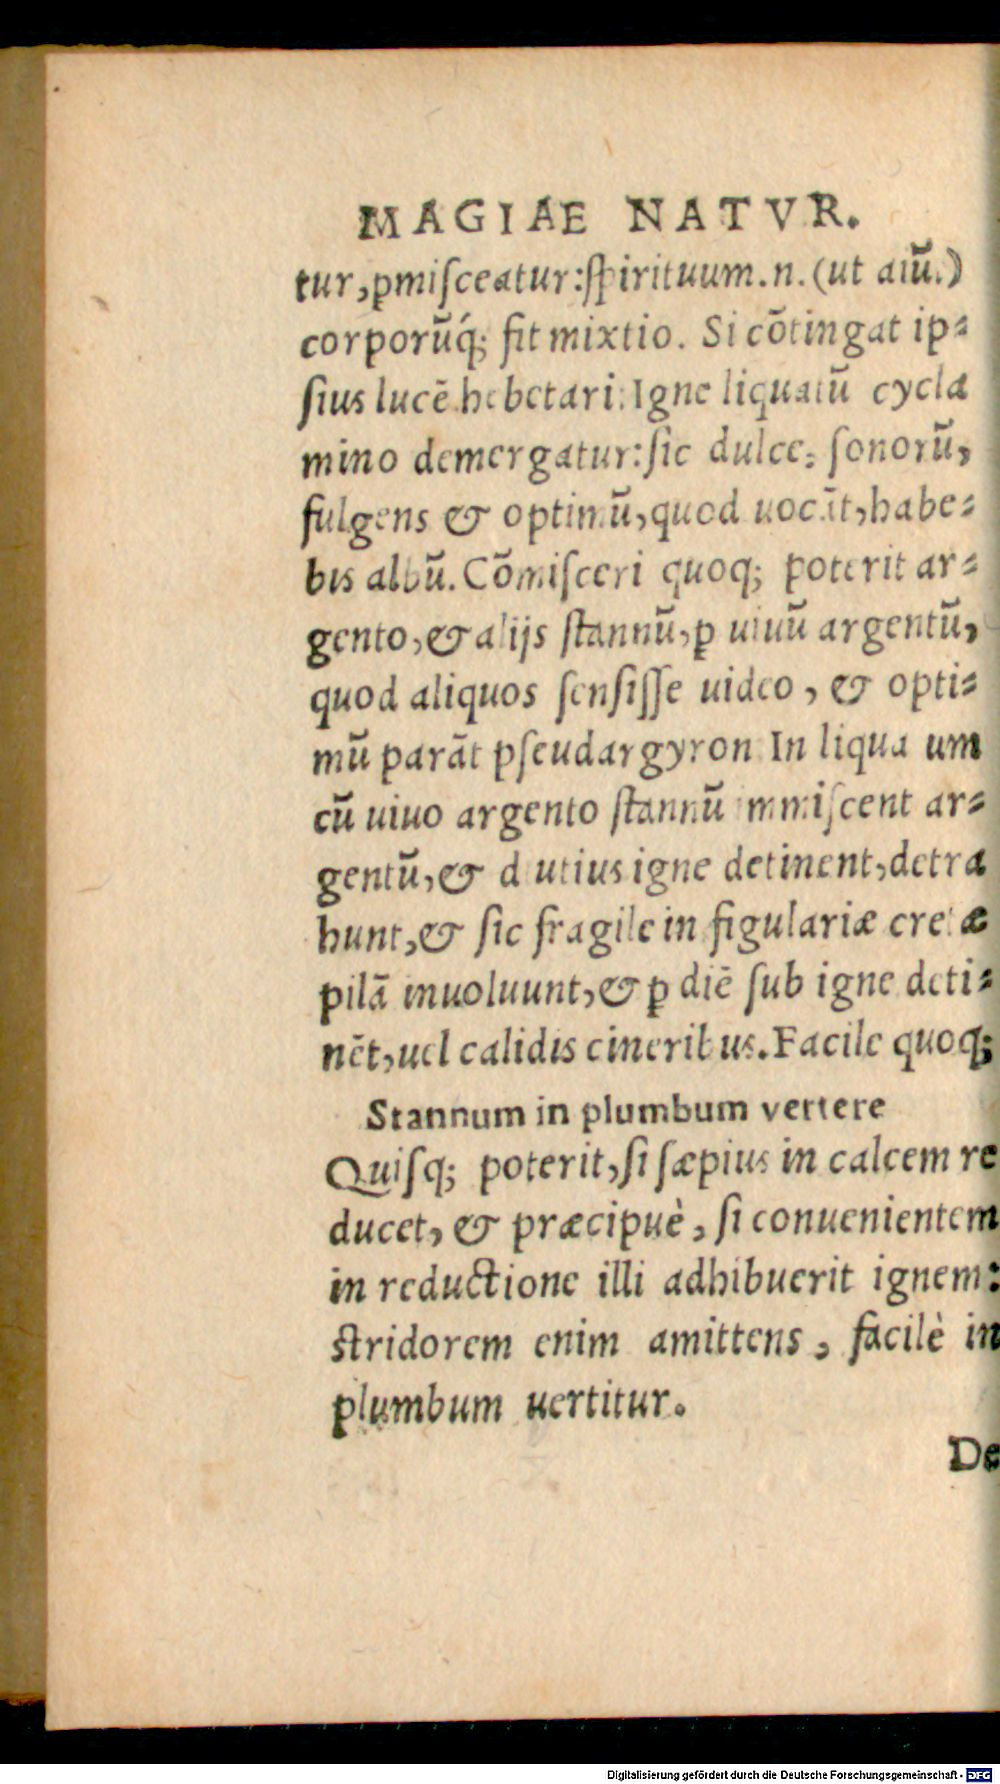 MAGIAE NATVR.
tur, ꝑmiſceatur: ſpirituum.n.(ut aiũ.)
corporũq́; fit mixtio. Si cõtingat ip-
ſius lucẽ hebetari: Igne liquatũ cycla
mino demergatur: ſic dulce, ſonorũ,
fulgens & optimũ, quod uocãt, habe-
bis albũ. Cõmiſceri quoq; poterit ar-
gento, & alijs ſtannũ, ꝑ uiuũ argentũ,
quod aliquos ſenſiſſe uideo, & opti-
mũ parãt pſeudargyron In liqua um
cũ uiuo argento ſtannũ immiſcent ar-
gentũ, & d utius igne detinent, detra
hunt, & ſic fragile in figulariæ cretæ
pilã inuoluunt, & ꝑ diẽ ſub igne deti-
nẽt, uel calidis cineribus. Facile quoq;
Stannum in plumbum vertere
Quiſq; poterit, ſi ſæpius in calcem re
ducet, & præcipuè, ſi conuenientem
in reductione illi adhibuerit ignem:
ſtridorem enim amittens, facilè in
plumbum uertitur.
De
Digitalisierung gefördert durch die Deutsche Forschungsgemeinschaft - DFG